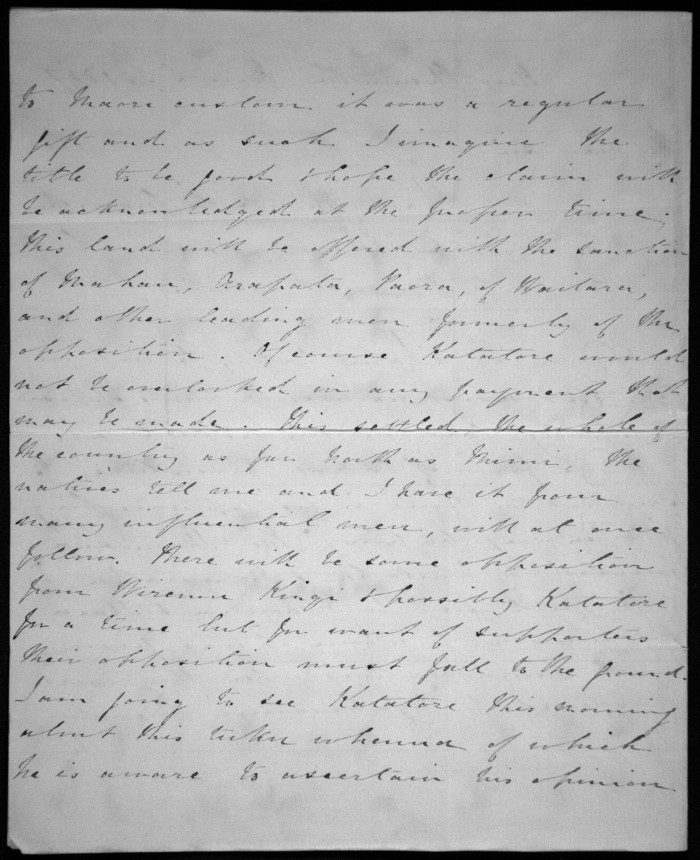 to Maori custom it was a regular
gift and as such I imagine the
title to be good & hope the claim will
be acknowledged at the proper time.
This land will be offered with the sanction
of Mahau, Arapata, Paora, of Waitara,
and other leading men formerly of the
opposition. Of course Katatore would
not be overlooked in any payment that
may be made. This settled, the whole of
the country as far north as Mimi, the
natives tell me and I have it from
many influential men, will at once
follow. There will be some opposition
from Wiremu Kingi & possibly Katatore
for a time but for want of supporters
their opposition must fall to the ground.
I am going to see Katatore this morning
about this tuku whenua of which
he is aware to ascertain his opinion